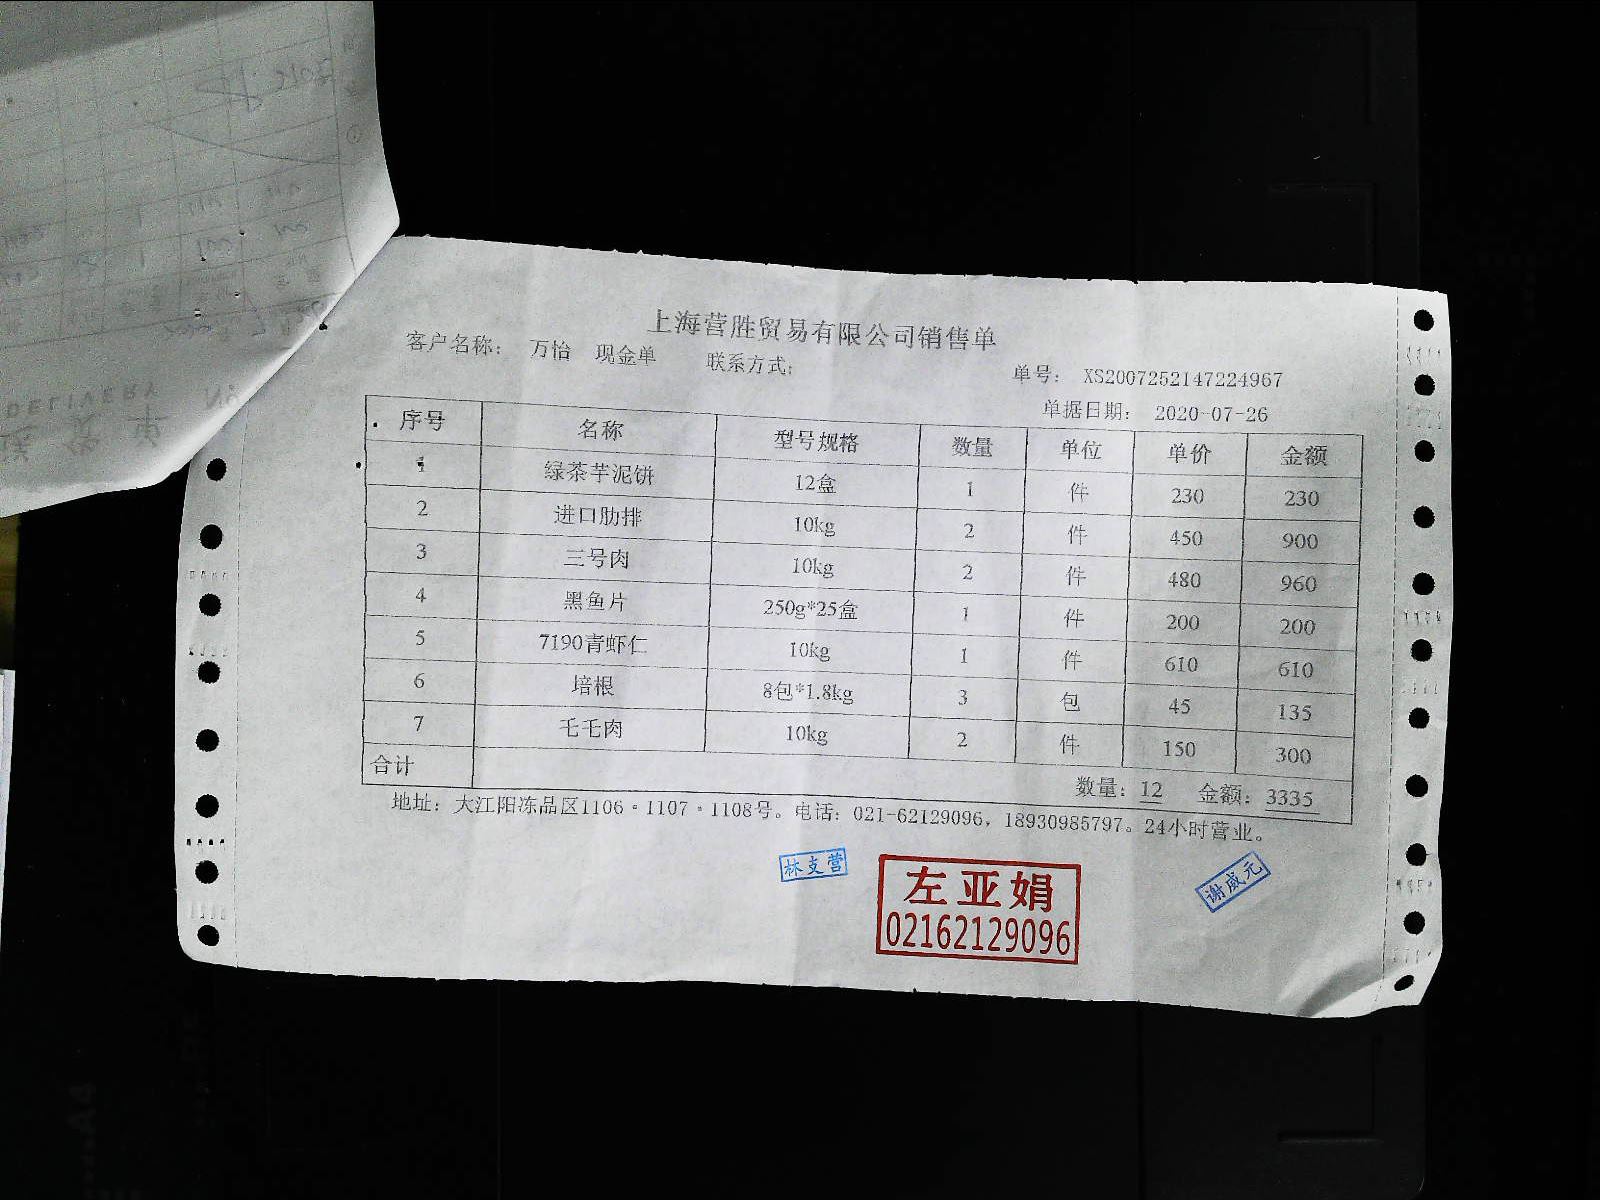 上海营胜贸易有限公司销售单
客户名称： 万怡 现金单 联系方式: 单号： XS2007252147224967
单据日期： 2020-07-26
序号 名称 型号规格 数量 单位 单价 金额
1 绿茶芋泥饼 12盒 1 件 230 230
2 进口肋排 10kg 2 件 450 900
3 三号肉 10kg 2 件 480 960
4 黑鱼片 250g*25盒 1 件 200 200
5 7190青虾仁 10kg 1 件 610 610
6 培根 8包*1.8kg 3 包 45 135
7 乇乇肉 10kg 2 件 150 300
合计 数量：12 金额：3335
地址：大江阳冻品区1106·1107·1108号。电话：021-62129096，18930985797。24小时营业。
林支营
左亚娟
02162129096
谢威元
DELIVERY